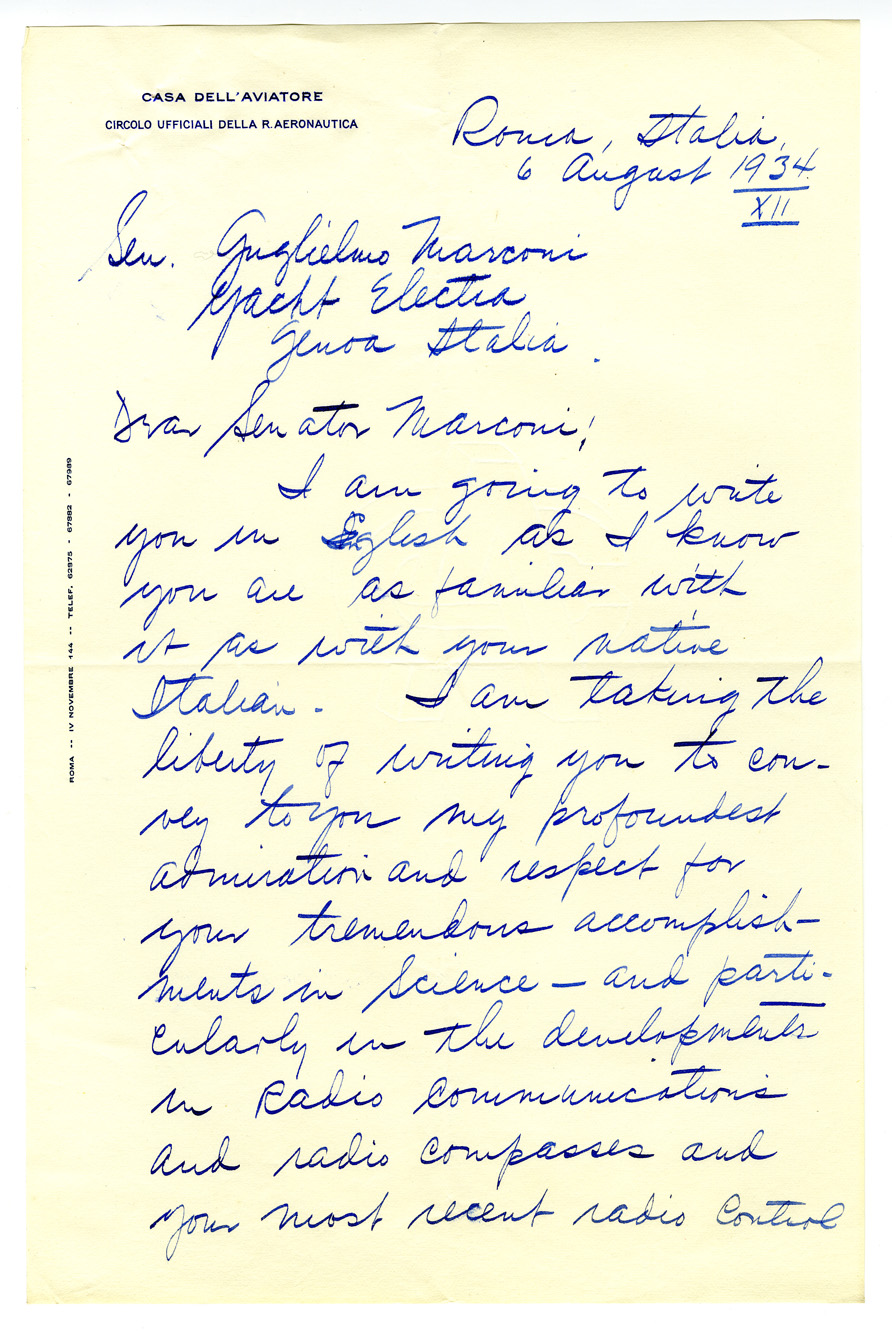 CASA DELL'AVIATORE
CIRCOLO UFFICIALI DELLA R. AERONAUTICA
Roma, Italia,
6 August 1934
XII
Sen. Guglielmo Marconi
Yacht Electra
Genoa Italia.
Dear Senator Marconi:
I am going to write
you in Eglish as I know
you are as familiar with
it as with your native
Italian. I am taking the
liberty of writing you to con-
vey to you my profoundest
admiration and respect for
your tremendous accomplish-
ments in Science — and parti-
cularly in the developments
in Radio Communications
and radio compasses and
your most recent radio Control
ROMA -- IV NOVEMBRE 144 -- TELEF. 62975 - 67982 - 67989